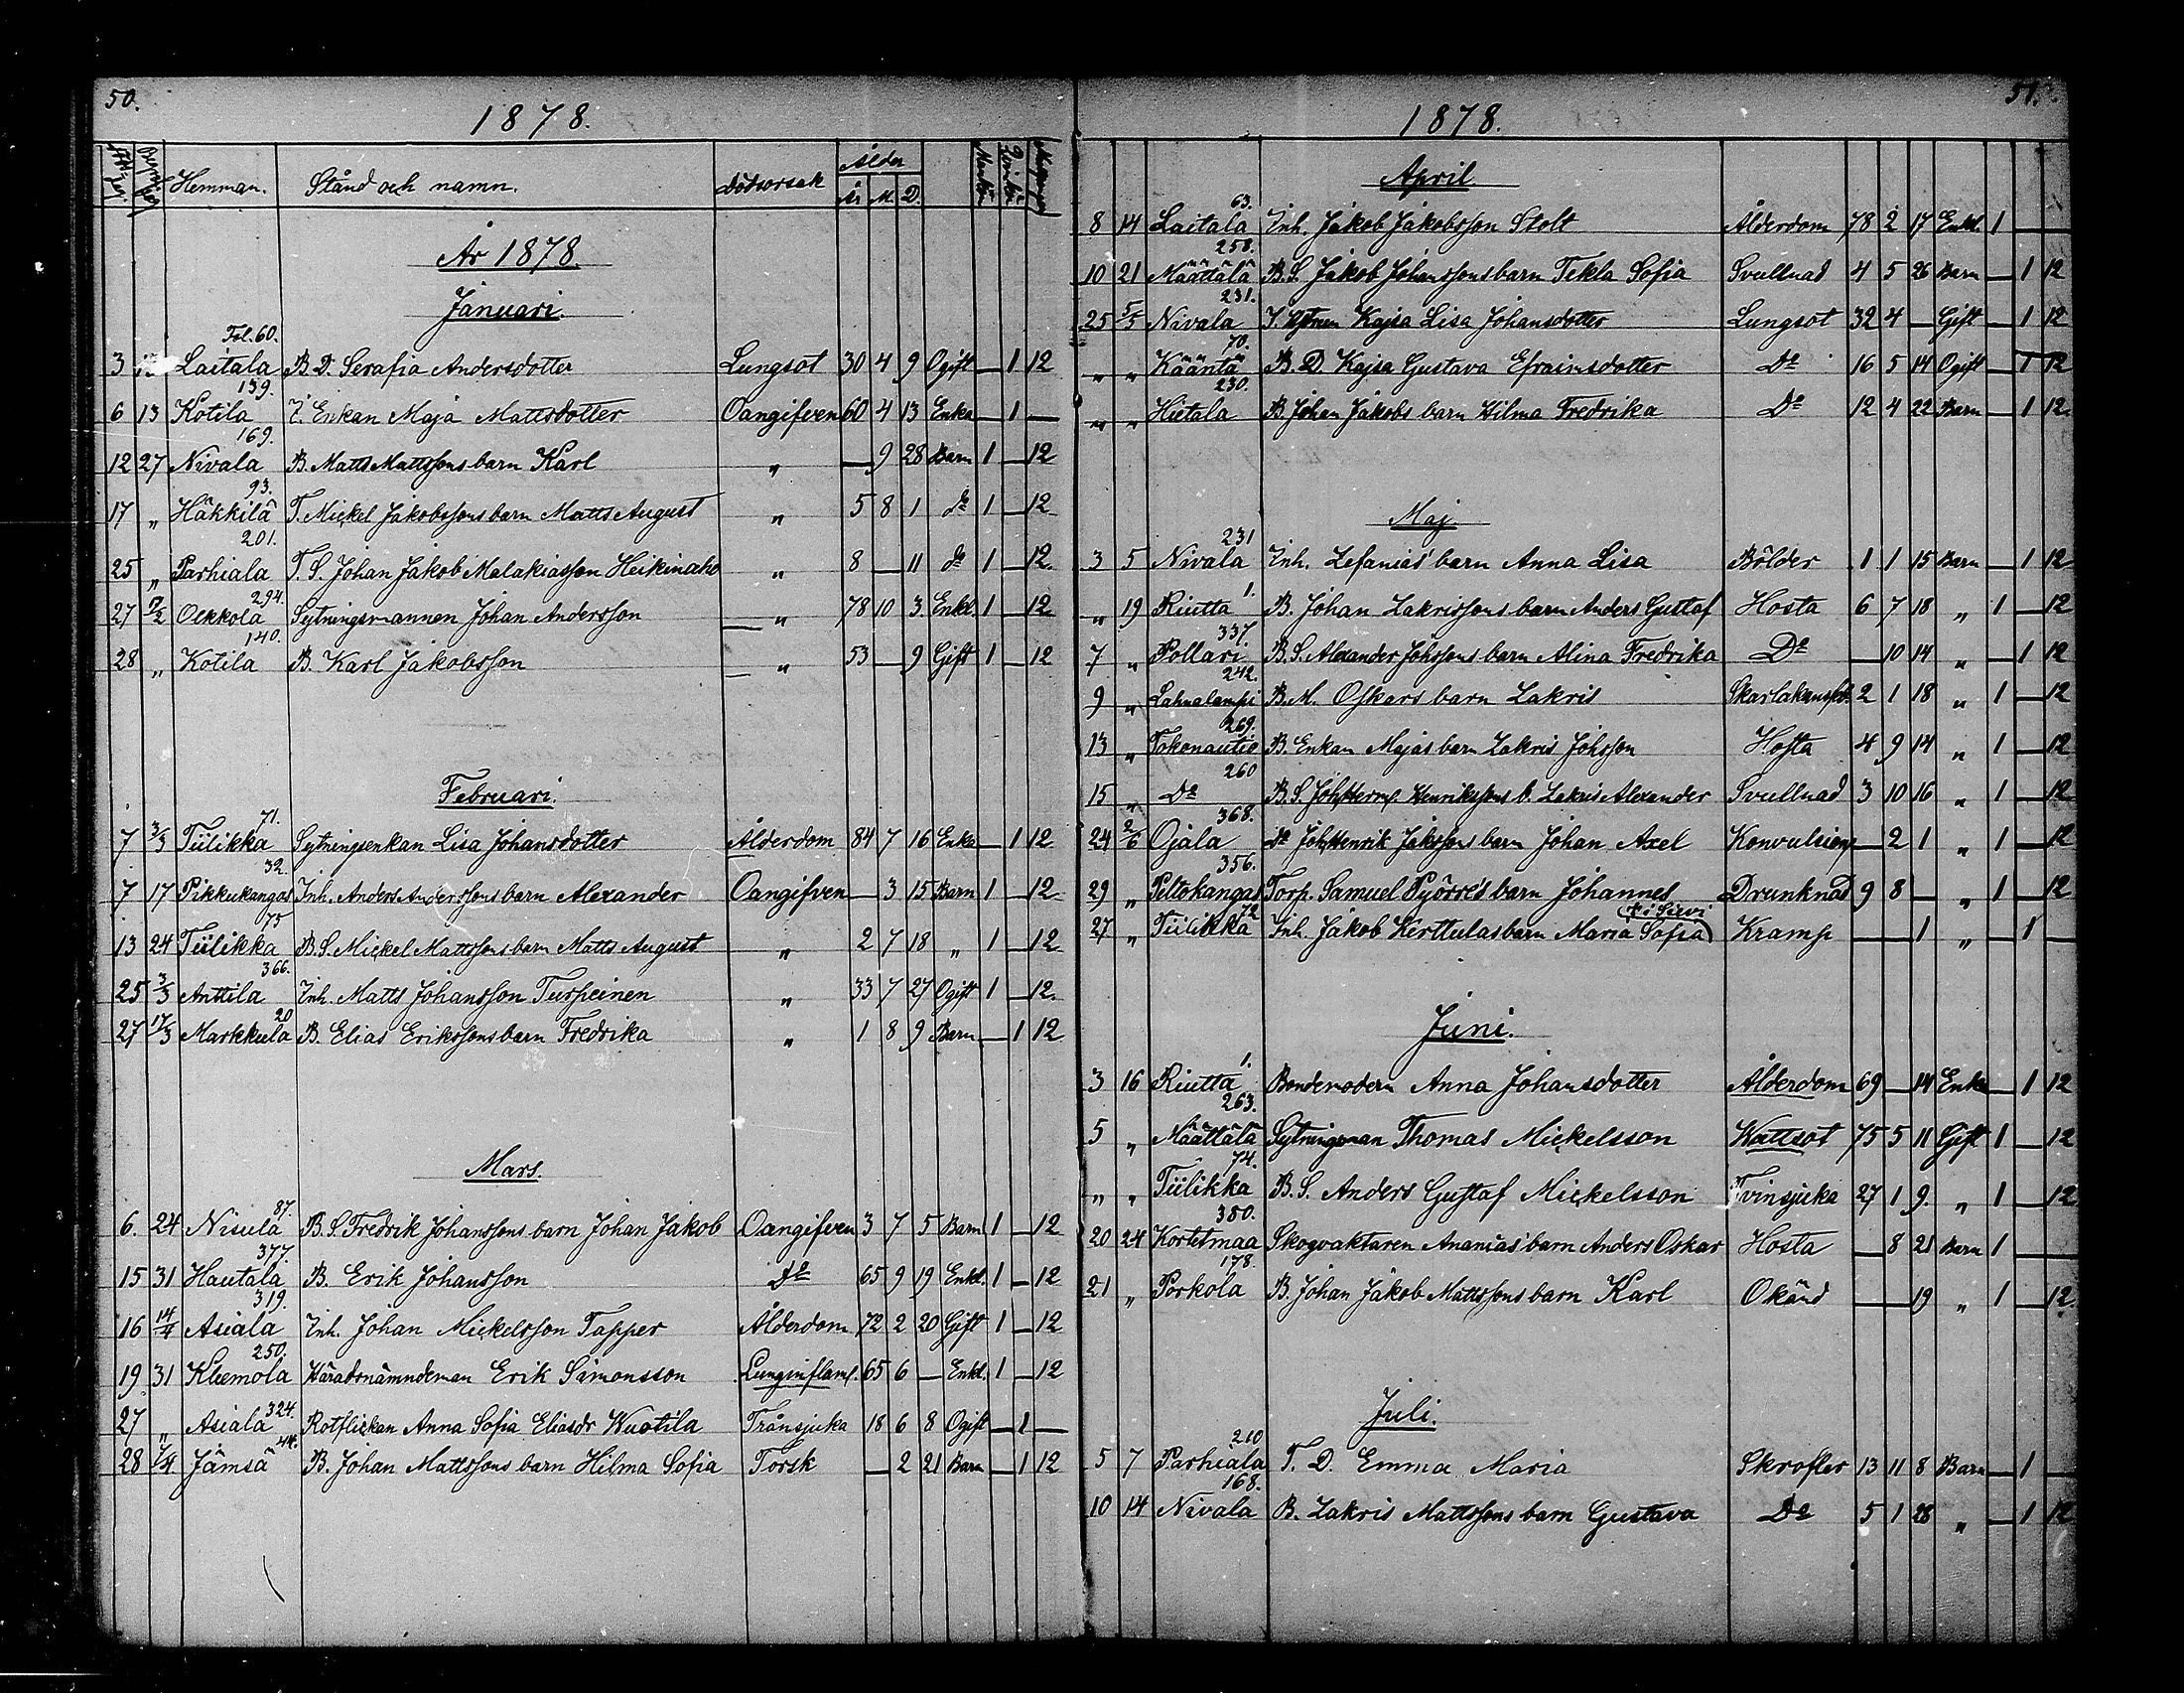 50.
1878.
Hemman. Stånd och namn. dödsorsak Ålder
År M. D.
År 1878.
Januari.
Fol. 60.
3 Laitala B. D. Serafia Andersdotter Lungsot 30 4 9 Ogift — 1 12
139.
6 13 Kotila I. Enkan Maja Mattsdotter Oangifven 60 4 13 Enka — 1 —
169.
12 27 Nivala B. Matts Mattssons barn Karl „ — 9 28 Barn 1 — 12
93.
17 „ Häkkilä T. Mickel Jakobssons barn Matts August „ 5 8 1 do 1 — 12
201.
25 „ Parhiala T. S. Johan Jakob Malakiasson Heikinaho „ 8 — 11 do 1 — 12.
294.
27 17/2 Olkkola Sytningsmannen Johan Andersson „ 78 10 3. Enkl. 1 — 12
140.
28 „ Kotila B. Karl Jakobsson „ 53 — 9 Gift 1 — 12
Februari.
71.
7 3/3 Tiilikka Sytningsenkan Lisa Johansdotter Ålderdom 84 7 16 Enka — 1 12
32.
7 17 Pikkukangas Inh. Anders Anderssons barn Alexander Oangifven — 3 15 Barn 1 — 12
75
13 24 Tiilikka B. S. Mickel Mattssons barn Matts August „ 2 7 18 „ 1 — 12
366.
25 3/3 Anttila Inh. Matts Johansson Turpeinen „ 33 7 27 Ogift 1 — 12.
20
27 17/3 Markkula B. Elias Erikssons barn Fredrika „ 1 8 9 Barn — 1 12
Mars.
87.
6. 24 Nisula B. S. Fredrik Johanssons barn Johan Jakob Oangifven 3 7 5 Barn 1 — 12
377.
15 31 Hautala B. Erik Johansson Do 65 9 19 Enkl. 1 — 12
319.
16 14/4 Asiala Inh. Johan Mickelsson Tapper Ålderdom 72 2 20 Gift 1 — 12
250.
19 31 Kliemola Häradsnämndeman Erik Simonsson Lunginflam. 65 6 — Enkl. 1 — 12
324.
27 „ Asiala Rotflickan Anna Sofia Eliasdr Kustila Trånsjuka 18 6 8 Ogift — 1 —
44.
28 7/4 Jämsä B. Johan Mattssons barn Hilma Sofia Torsk — 2 21 Barn — 1 12
51.
1878.
April
63.
8 14 Laitala Inh. Jakob Jakobsson Stolt Ålderdom 78 2 17 Enkl. 1 —
258.
10 21 Määttälä B. S. Jakob Johanssons barn Tekla Sofia Svullnad 4 5 26 Barn — 1 12
231.
25 5/5 Nivala Kajsa Lisa Johansdotter Lungsot 32 4 — Gift — 1 12
70.
„ „ Kääntä B. D. Kajsa Gustava Efraimsdotter Do 16 5 14 Ogift — 1 12
230.
„ „ Hietala B. Johan Jakobs barn Hilma Fredrika Do 12 4 22 Barn — 1 12.
Maj.
231
3 5 Nivala Inh. Zefanias' barn Anna Lisa Bölder 1 1 15 Barn — 1 12
1.
„ 19 Riutta B. Johan Zakrissons barn Anders Gustaf Hosta 6 7 18 „ 1 — 12
337.
7 „ Pollari B. S. Alexander Johssons barn Alina Fredrika Do — 10 14 „ — 1 12
242.
9 „ Lahnalampi B. M. Oskars barn Zakris 2 1 18 „ 1 — 12
269.
13 „ B. Enkan Majas barn Zakris Johsson Hosta 4 9 14 „ 1 — 12
260
15 „ Do B. S. Joh. Herm. Henrikssons b. Zakris Alexander Svullnad 3 10 16 „ 1 — 12
368.
24 2/6 Ojala do Joh. Henrik Jakssons barn Johan Axel Konvulsion — 2 1 „ 1 — 12
356.
29 „ Peltokangas Torp. Samuel Pyörre's barn Johannes Drunknad 9 8 — „ 1 — 12
72
27 „ Tiilikka Inh. Jakob Kerttulas barn Maria Sofia (i Sievi) Kramp — 1 „ — 1 —
Juni.
1.
3 16 Riutta Bondemodern Anna Johansdotter Ålderdom 69 — 14 Enka — 1 12
263.
5 „ Määttälä Sytningsman Thomas Mickelsson Wattsot 75 5 11 Gift 1 — 12
74.
„ „ Tiilikka B. S. Anders Gustaf Mickelsson Tvinsjuka 27 1 9. „ 1 — 12
380.
20 24 Kortetmaa Skogvaktaren Ananias' barn Anders Oskar Hosta — 8 21 Barn 1 —
178.
21 „ Porkola B. Johan Jakob Mattssons barn Karl Okänd — 19 „ 1 — 12.
Juli.
210
5 7 Parhiala T. D. Emma Maria Skrofler 13 11 8 Barn — 1 —
168.
10 14 Nivala B. Zakris Mattssons barn Gustava Do 5 1 28 „ — 1 12